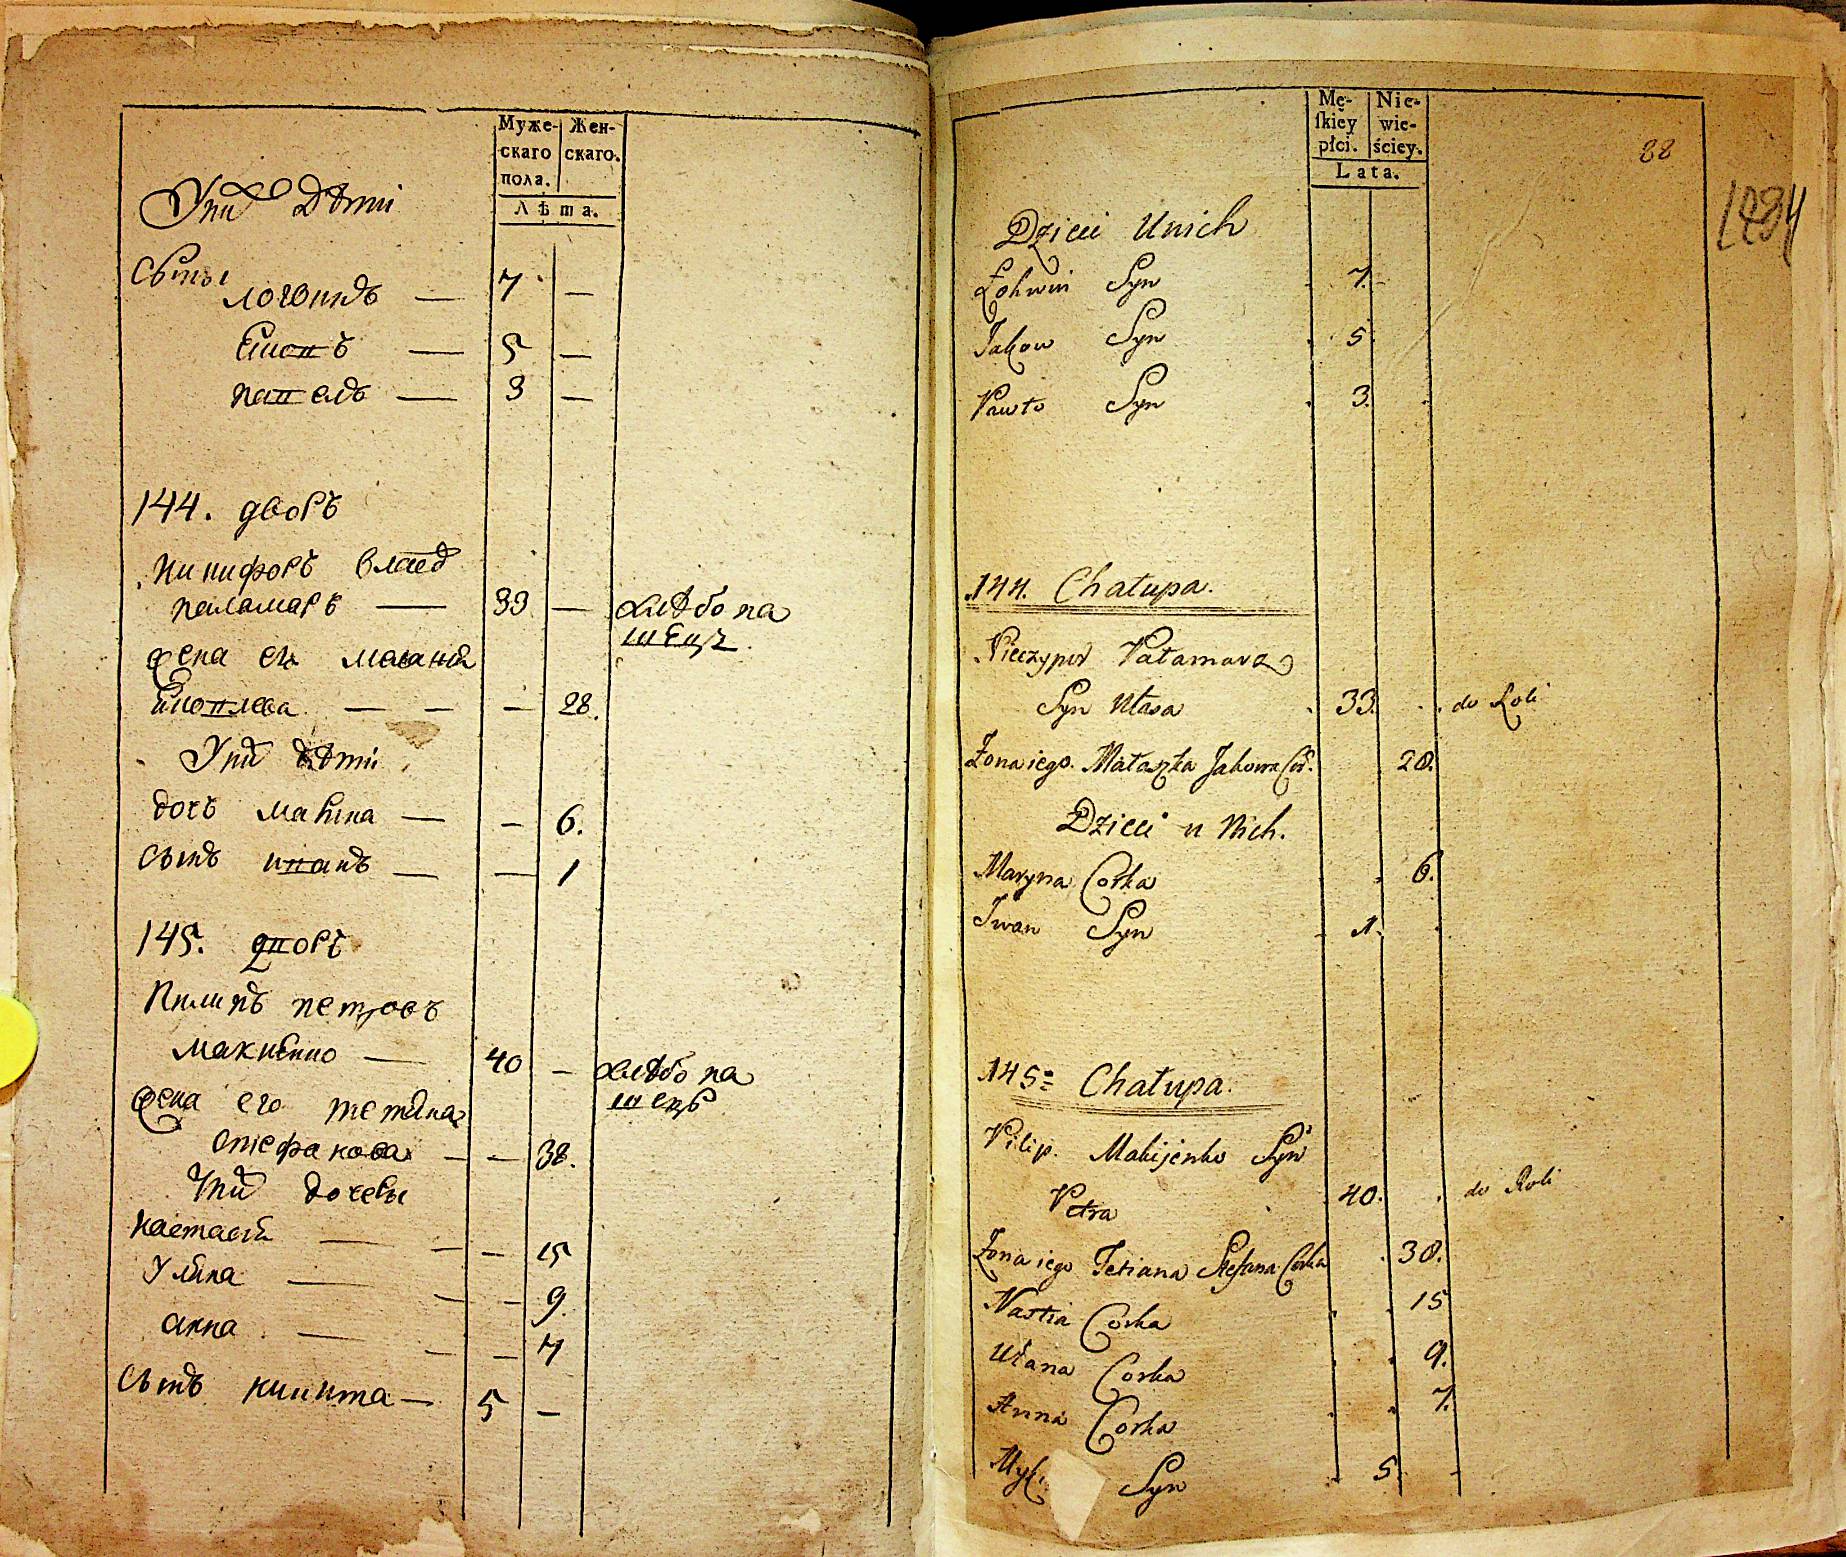 Муже-
скаго
пола.
Жен-
скаго.
Лѣта.
У ни дѣти
Сыны
логвинъ — 7 —
— 5 —
павелъ — 3 —
144. дворъ
Никифоръ влас
паламаръ — 33 — хлѣбопа
шецъ.
жена ег маланія
— — — 28.
У ни дѣти
дочъ маріна — — 6.
Сынъ иванъ — — 1
145. дворъ
Пилипъ петровъ
макиенко — 40 — хлѣбопа
шецъ
жена его тетяна
Стефанова — — 38.
У ни дочеры
настасія — — — 15
Уляна — — — 9.
анна — — — 7
Сынъ никита — 5 —
Mę-
ſkiey
płci.
Nie-
wie-
ściey.
Lata.
88
1484
Dzieci U nich
Łohwin Syn 7.
Jakow Syn 5
Pawło Syn 3.
144. Chałupa.
Nieczypor Pałamarz
Syn Ułasa 33. do Roli
Żona iego. Małaszka Jakowa Cor. 28.
Dzieci u Nich.
Maryna Corka 6.
Iwan Syn 1.
145 Chałupa.
Pilip. Makijenko Syn
Petra 40. do Roli
Żona iego Tetiana Stefana Corka 38.
Nastia Corka 15
Ułana Corka 9.
Anna Corka 7.
Syn 5.